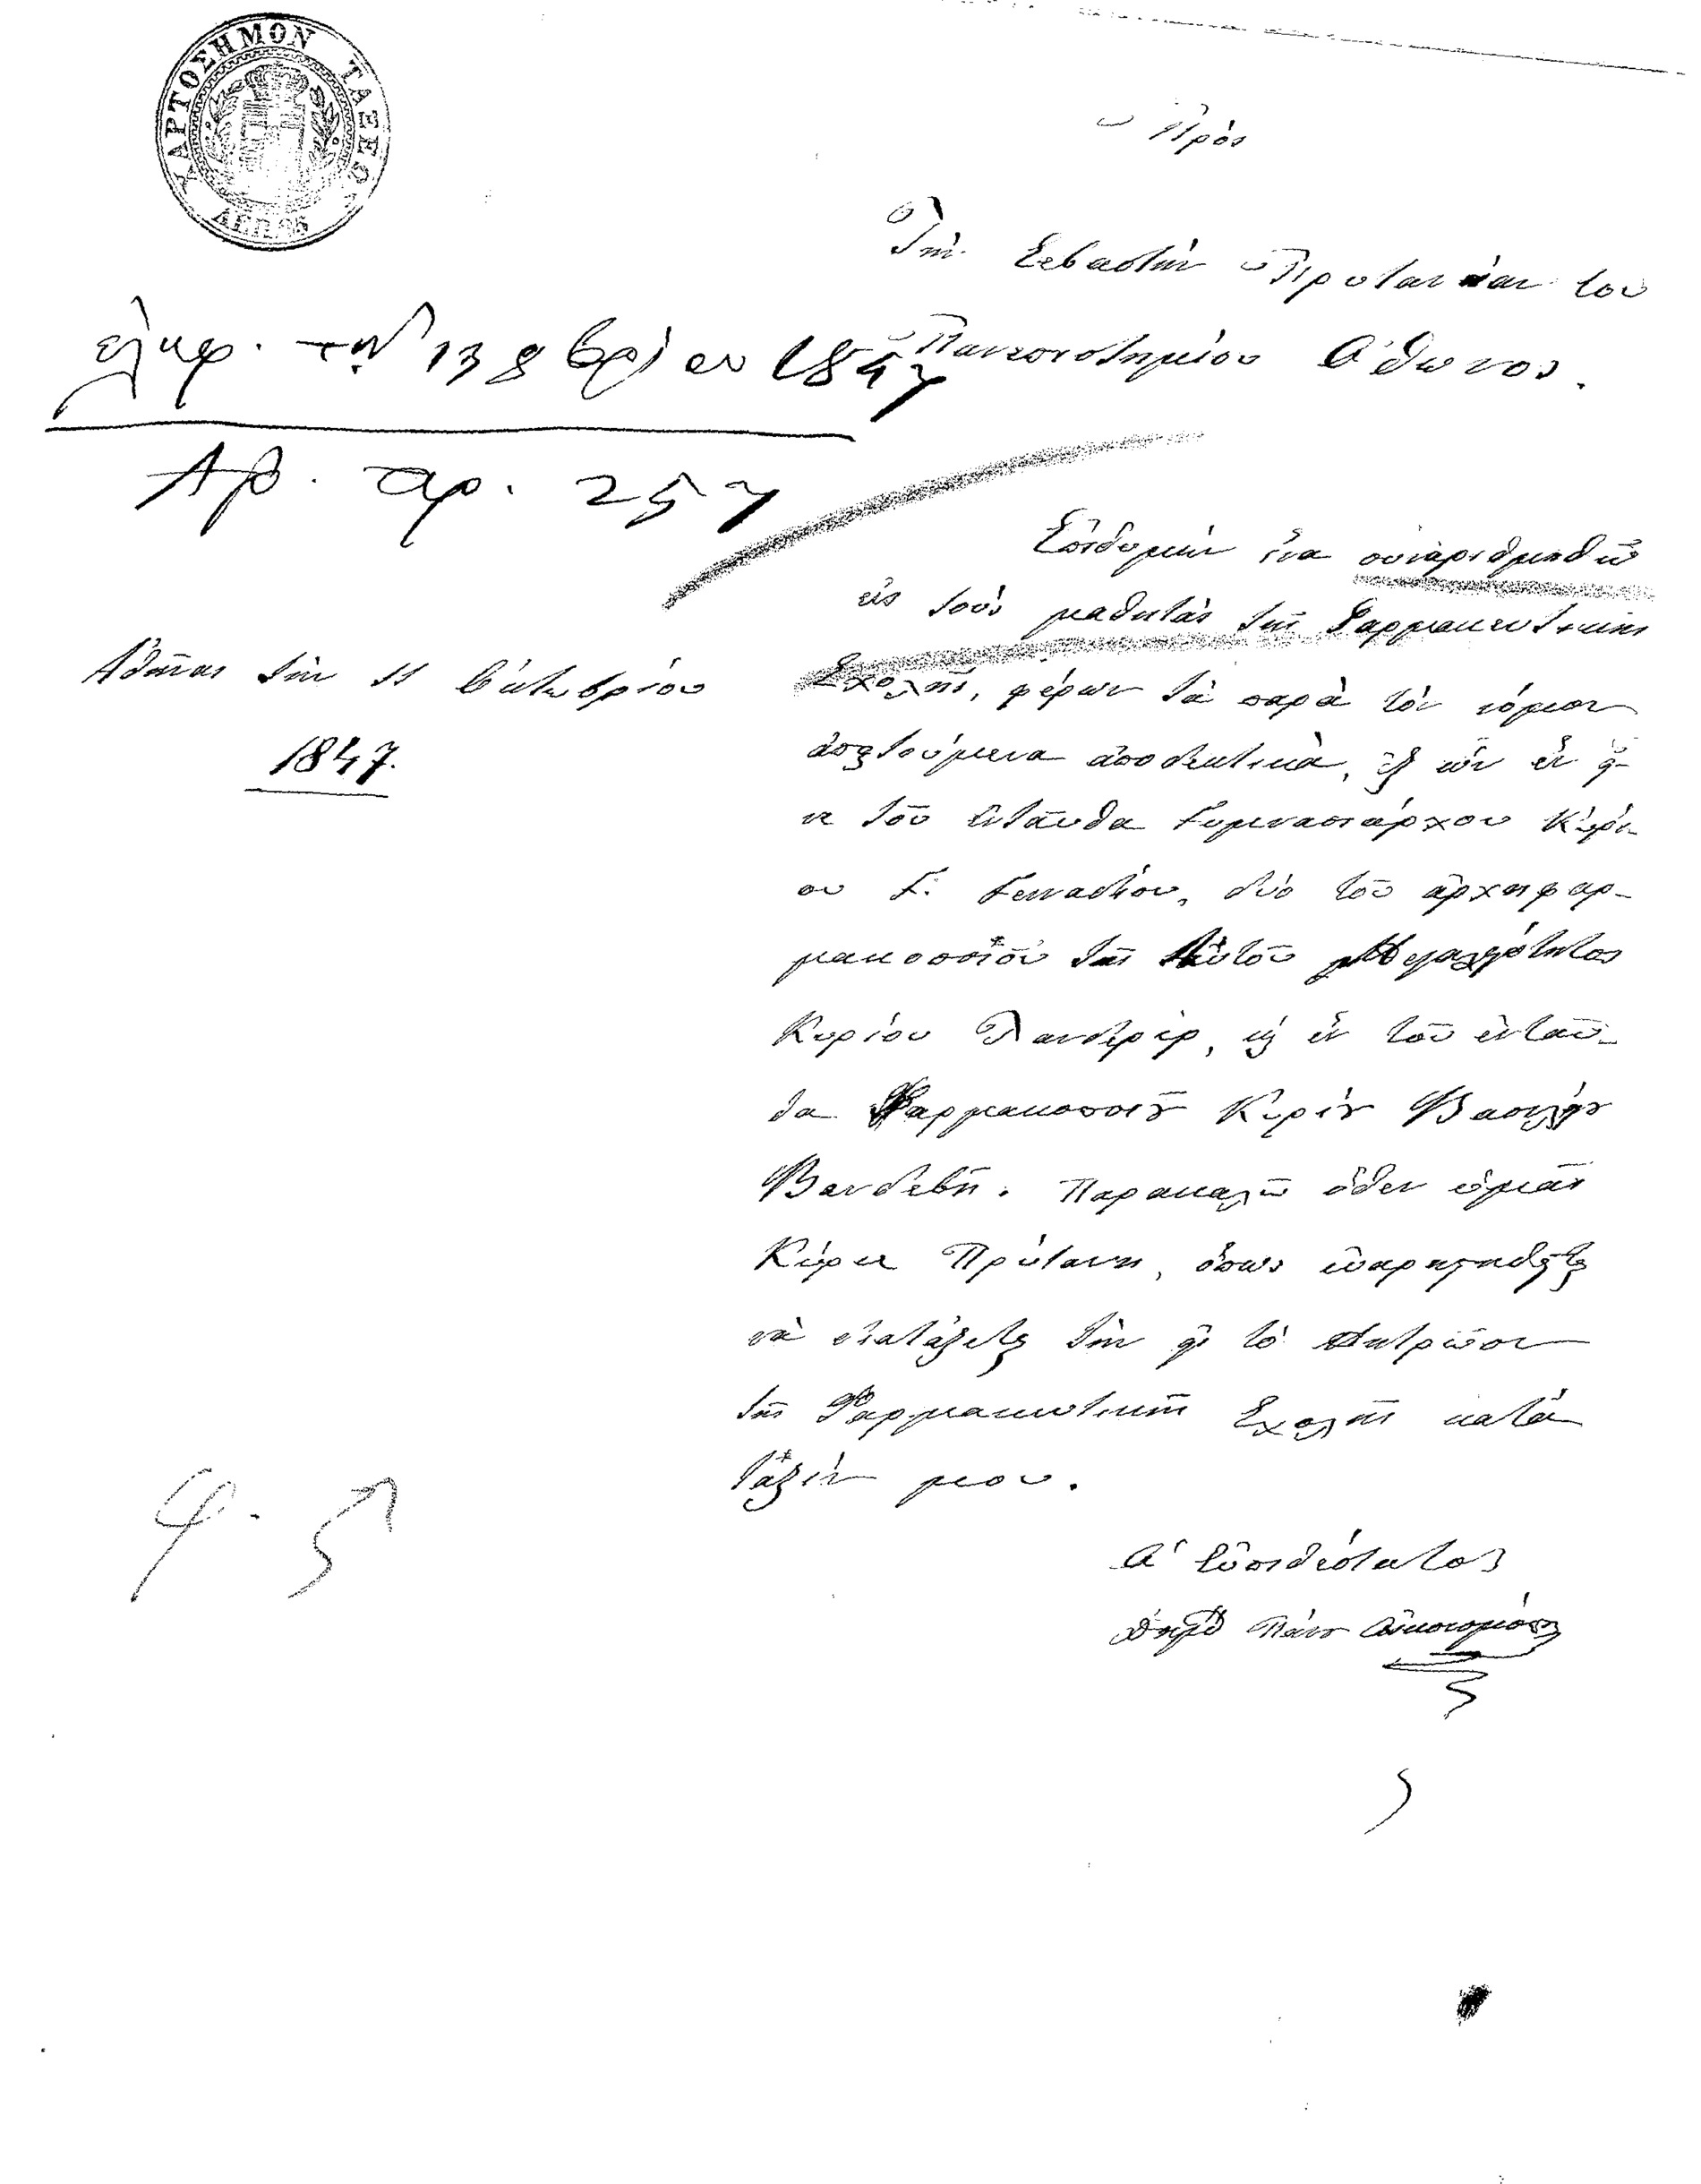 ΧΑΡΤΟΣΗΜΟΝ ΤΑΞΕΩΣ
Πρὸς
Τὴν Σεβαστὴν Πρυτανείαν του
Πανεπιστημίου Ὄθωνος.
ἐλήφ. τὴν 13 8βρίου 1847
Αρ. πρ. 257
Ἀθῆναι τὴν 11 Ὀκτωβρίου
1847.
Ἐπιθυμῶν ἵνα συναριθμηθῶ
εἰς τοὺς μαθητὰς τῆς Φαρμακευτικῆς
Σχολῆς, φέρων τὰ παρὰ τὸν νόμον
ἀπαιτούμενα ἀποδεικτικὰ, ἐξ ὧν ἓν
τοῦ ἐνταῦθα Γυμνασιάρχου Κυρί-
ου Γ. Γενναδίου, δύο τοῦ ἀρχιφαρ-
μακοποιοῦ τῆς Αὐτοῦ Μεγαλειότητος
Κυρίου Λανδερὲρ, καὶ ἓν τοῦ ἐνταῦ-
θα Φαρμακοποιοῦ Κυρίου Βασιλείου
Βανδεβῆ. Παρακαλῶ ὅθεν ὑμᾶς
Κύριε Πρύτανη, ὅπως εὐαρεστηθῆτε
νὰ διατάξετε τὴν εἰς τὸ Μητρῶον
τῆς Φαρμακευτικῆς Σχολῆς κατά
ταξίν μου.
Ὁ Εὐπειθέστατος
Πάνου